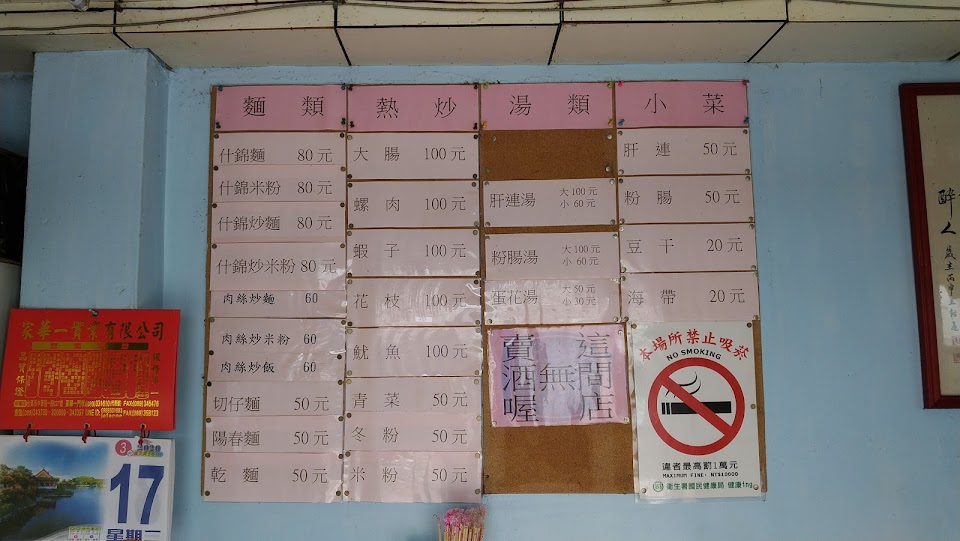 麵類
什錦麵 80元
什錦米粉 80元
什錦炒麵 80元
什錦炒米粉 80元
肉絲炒麵 60
肉絲炒米粉 60
肉絲炒飯 60
切仔麵 50元
陽春麵 50元
乾麵 50元
熱炒
大腸 100元
螺肉 100元
蝦子 100元
花枝 100元
魷魚 100元
青菜 50元
冬粉 50元
米粉 50元
湯類
肝連湯 大100元
小 60元
粉腸湯 大100元
小 60元
蛋花湯 大50元
小30元
這間店
無
賣酒喔
小菜
肝連 50元
粉腸 50元
豆干 20元
海帶 20元
本場所禁止吸菸
NO SMOKING
違者最高罰1萬元
MAXIMUM FINE: NT$10000
衛生署國民健康局 健康ing
家華一實業有限公司
品質保證
3
2020
17
星期二
醉人